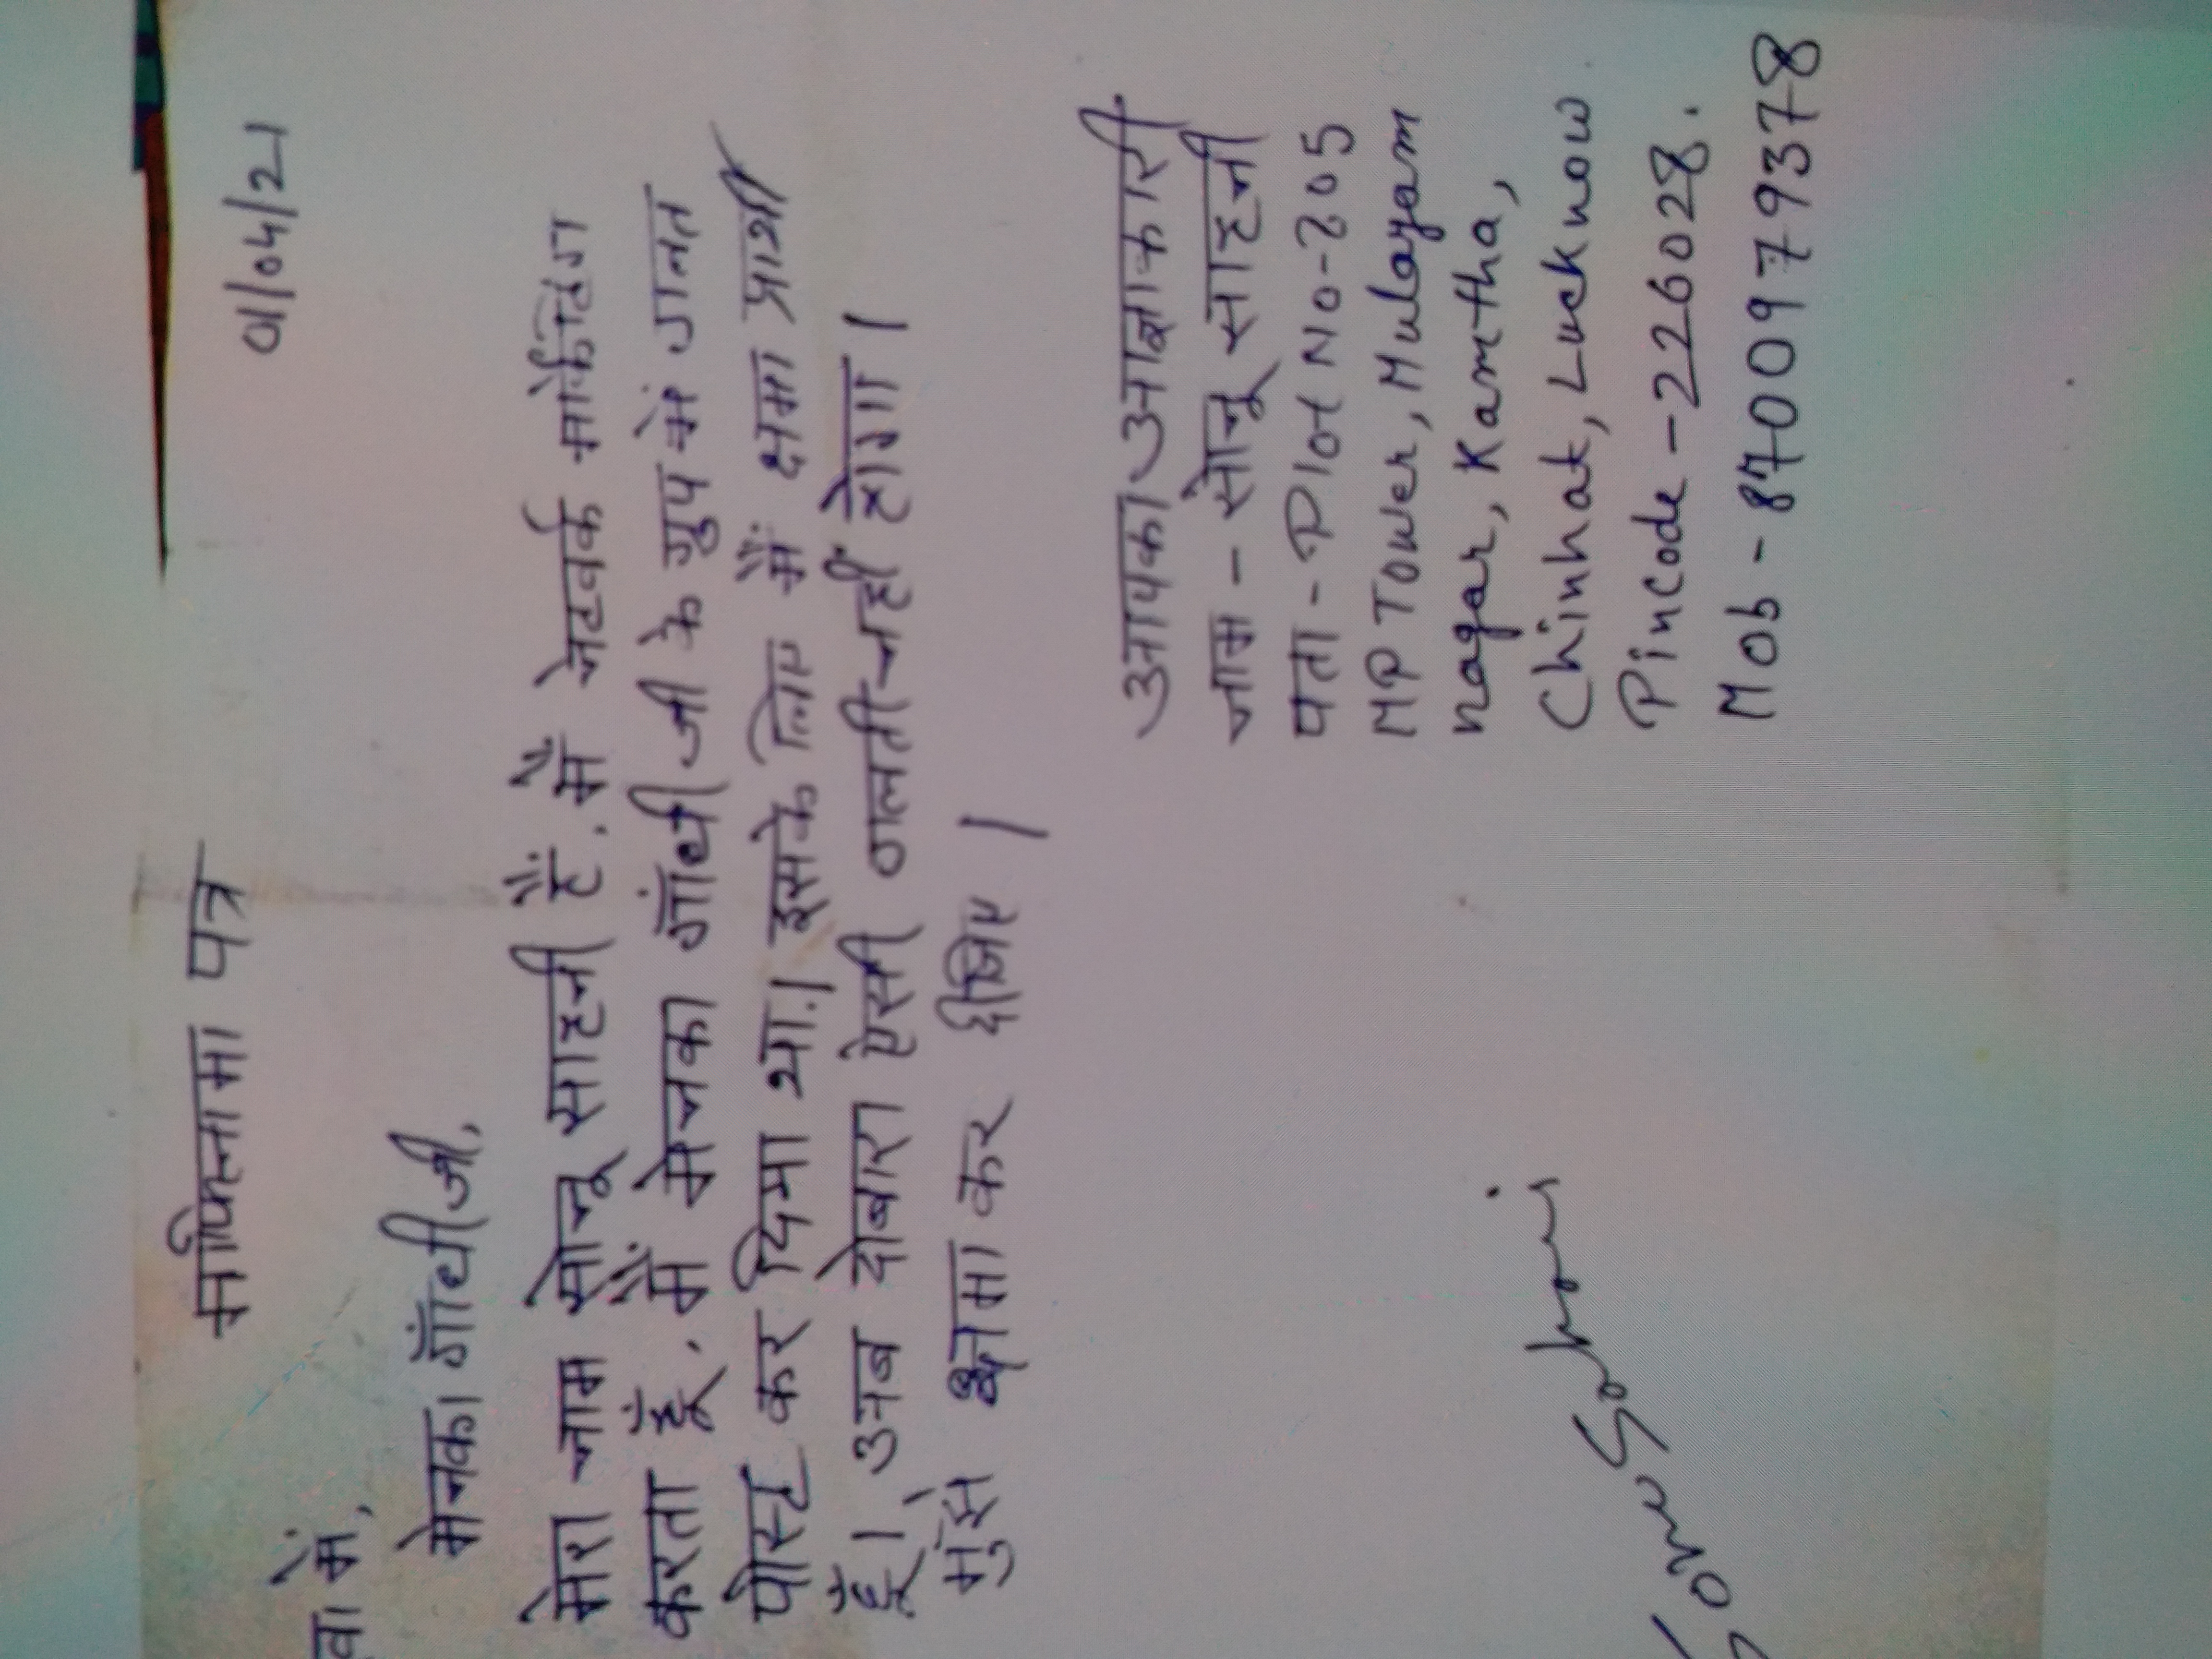 माफिनामा पत्र
01/04/21
वा में,
मेनका गाँधी जी,
मेरा नाम सोनू साहनी हैं. मैं नेटवर्क मार्केटिंग
करता हूँ. मैं मेनका गाँधी जी के ग्रुप में गलत
पोस्ट कर दिया था.। इसके लिए मैं क्षमा प्रार्थी
हूँ। अब दोबारा ऐसी गलती नहीं होगा।
मुझे क्षमा कर दीजिए।
आपका आज्ञाकारी
नाम - सोनू साहनी
पता - Plot No-205
MP Tower, Mulayam
nagar, Kamtha,
Chinhat, Lucknow
Pincode - 226028.
Mob - 8700979378
Sonu Sahani